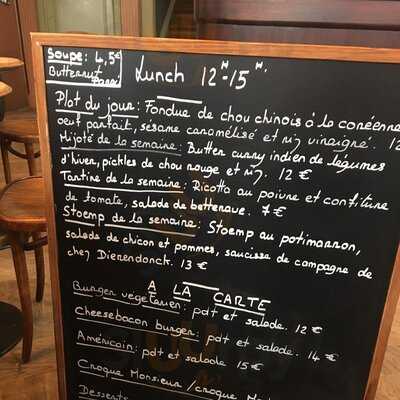 Soupe: 4,5€
Butternut
Panais
Lunch 12H-15H.
Plat du jour: Fondue de chou chinois à la coréenne
oeuf parfait, sésame caramélisé et riz vinaigré. 12
Mijoté de la semaine: Butter curry indien de légumes
d'hiver, pickles de chou rouge et riz. 12 €
Tartine de la semaine: Ricotta au poivre et confiture
de tomate, salade de betterave. 7 €
Stoemp de la semaine: Stoemp au potimarron,
salade de chicon et pommes, saucisse de campagne de
chez Dierendonck. 13 €
A LA CARTE
Burger végétarien: pdt et salade. 12 €
Cheesebacon burger: pdt et salade. 14 €
Américain: pdt et salade 15 €
Croque Monsieur / croque
Desserts